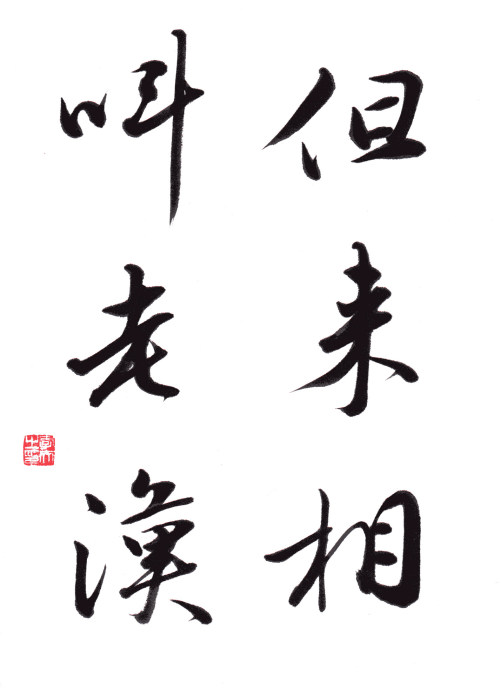 但来相
呌老漢